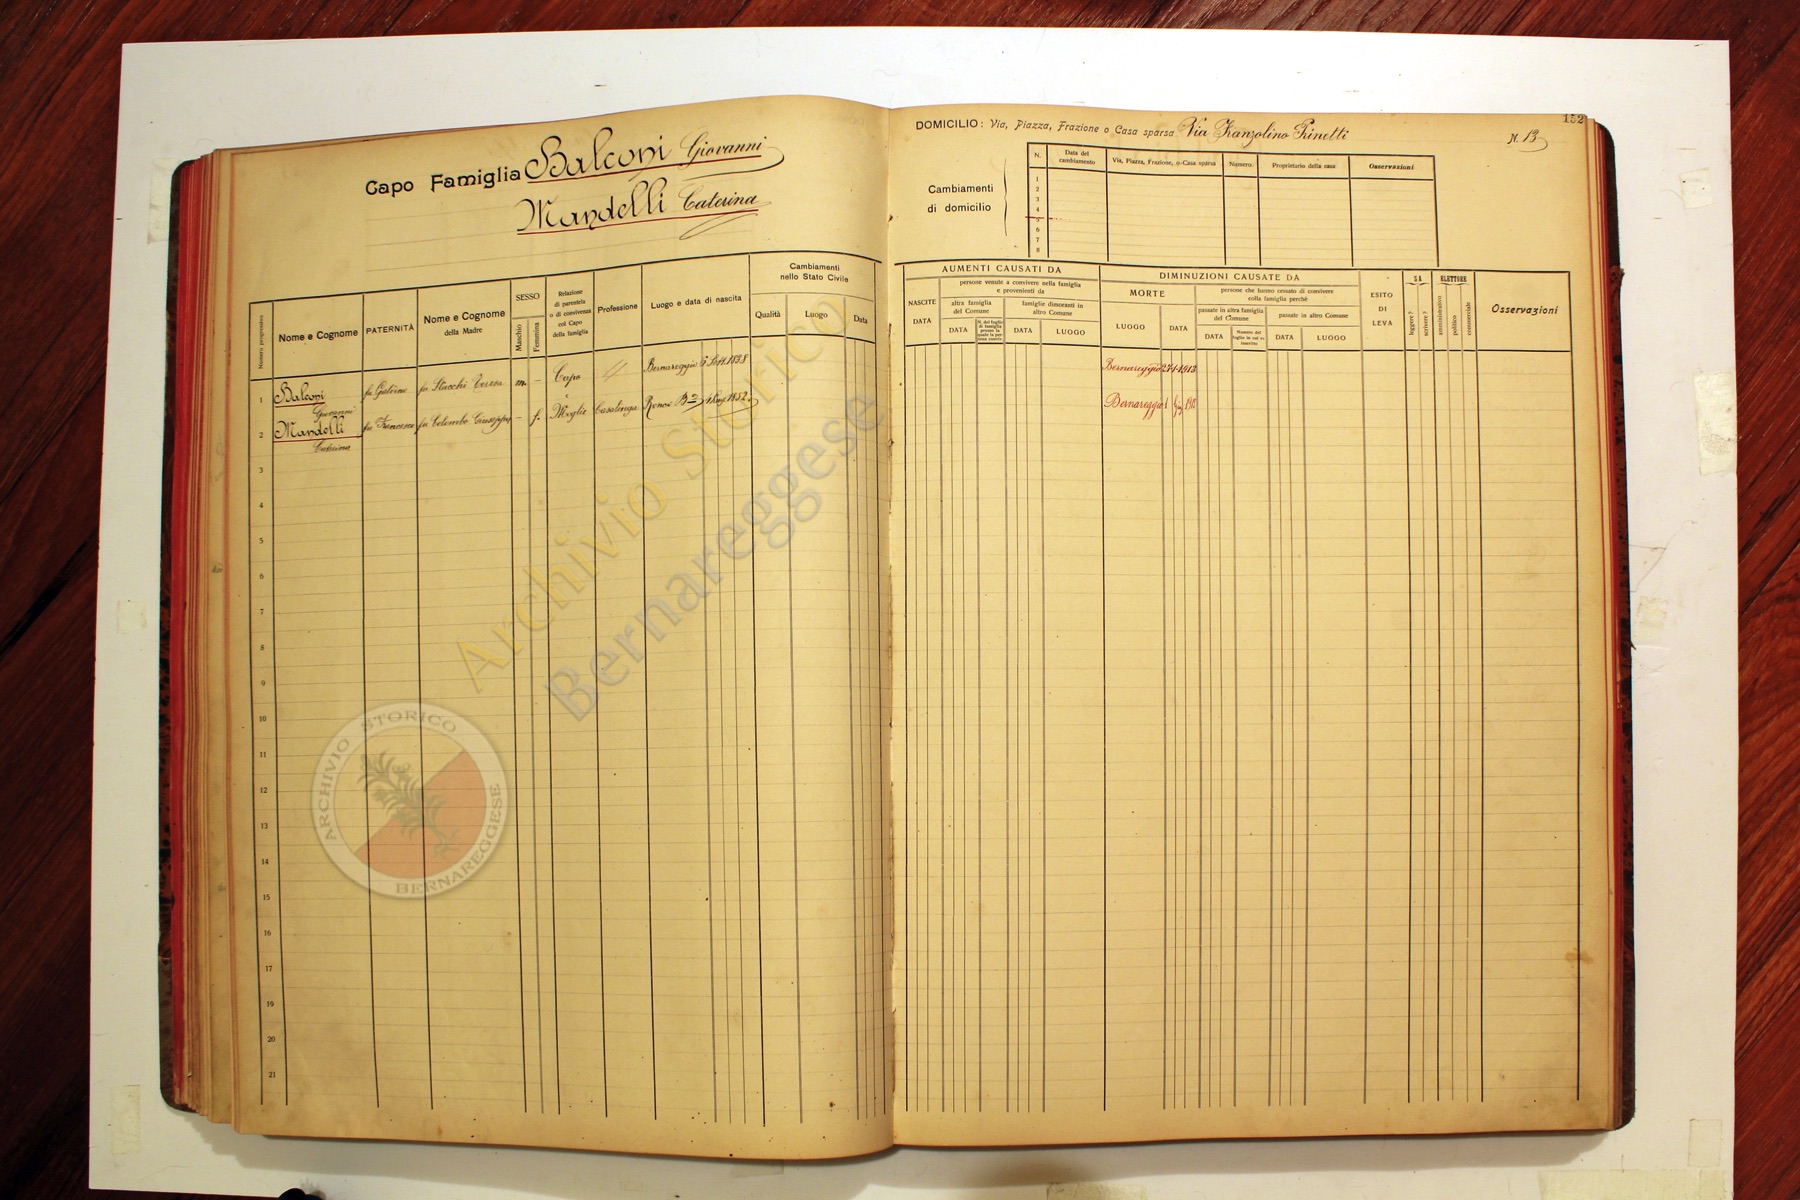 Capo Famiglia Balconi Giovanni
Mandelli Caterina
152
DOMICILIO: Via, Piazza, Frazione o Casa sparsa Via Franzolino Prinetti N. 13
Cambiamenti di domicilio
N. Data del cambiamento Via, Piazza, Frazione, o Casa sparsa Numero Proprietario della casa Osservazioni
1
2
3
4
5
6
7
8
Numero progressivo
Nome e Cognome
PATERNITÀ
Nome e Cognome della Madre
SESSO
Maschio
Femmina
Relazione di parentela o di convivenza col Capo della famiglia
Professione
Luogo e data di nascita
Cambiamenti nello Stato Civile
Qualità Luogo Data
AUMENTI CAUSATI DA
NASCITE DATA
persone venute a convivere nella famiglia e provenienti da
altra famiglia del Comune
DATA
famiglie dimoranti in altro Comune
DATA LUOGO
DIMINUZIONI CAUSATE DA
MORTE
LUOGO DATA
persone che hanno cessato di convivere colla famiglia perchè
passate in altra famiglia del Comune
DATA
Numero del foglio in cui è inscritto
passate in altro Comune
DATA LUOGO
ESITO DI LEVA
SA
leggere?
scrivere?
ELETTORE
amministrativo
politico
commerciale
Osservazioni
1 Balconi Giovanni fu fu Stucchi m. – Capo Bernareggio Sett. 1838 Bernareggio 27-1-1913
2 Mandelli Caterina fu Francesco fu Colombo Giuseppa – f. Moglie Casalinga 1852 Bernareggio
3
4
5
6
7
8
9
10
11
12
13
14
15
16
17
18
19
20
21
Archivio Storico
Bernareggese
ARCHIVIO STORICO
BERNAREGGESE